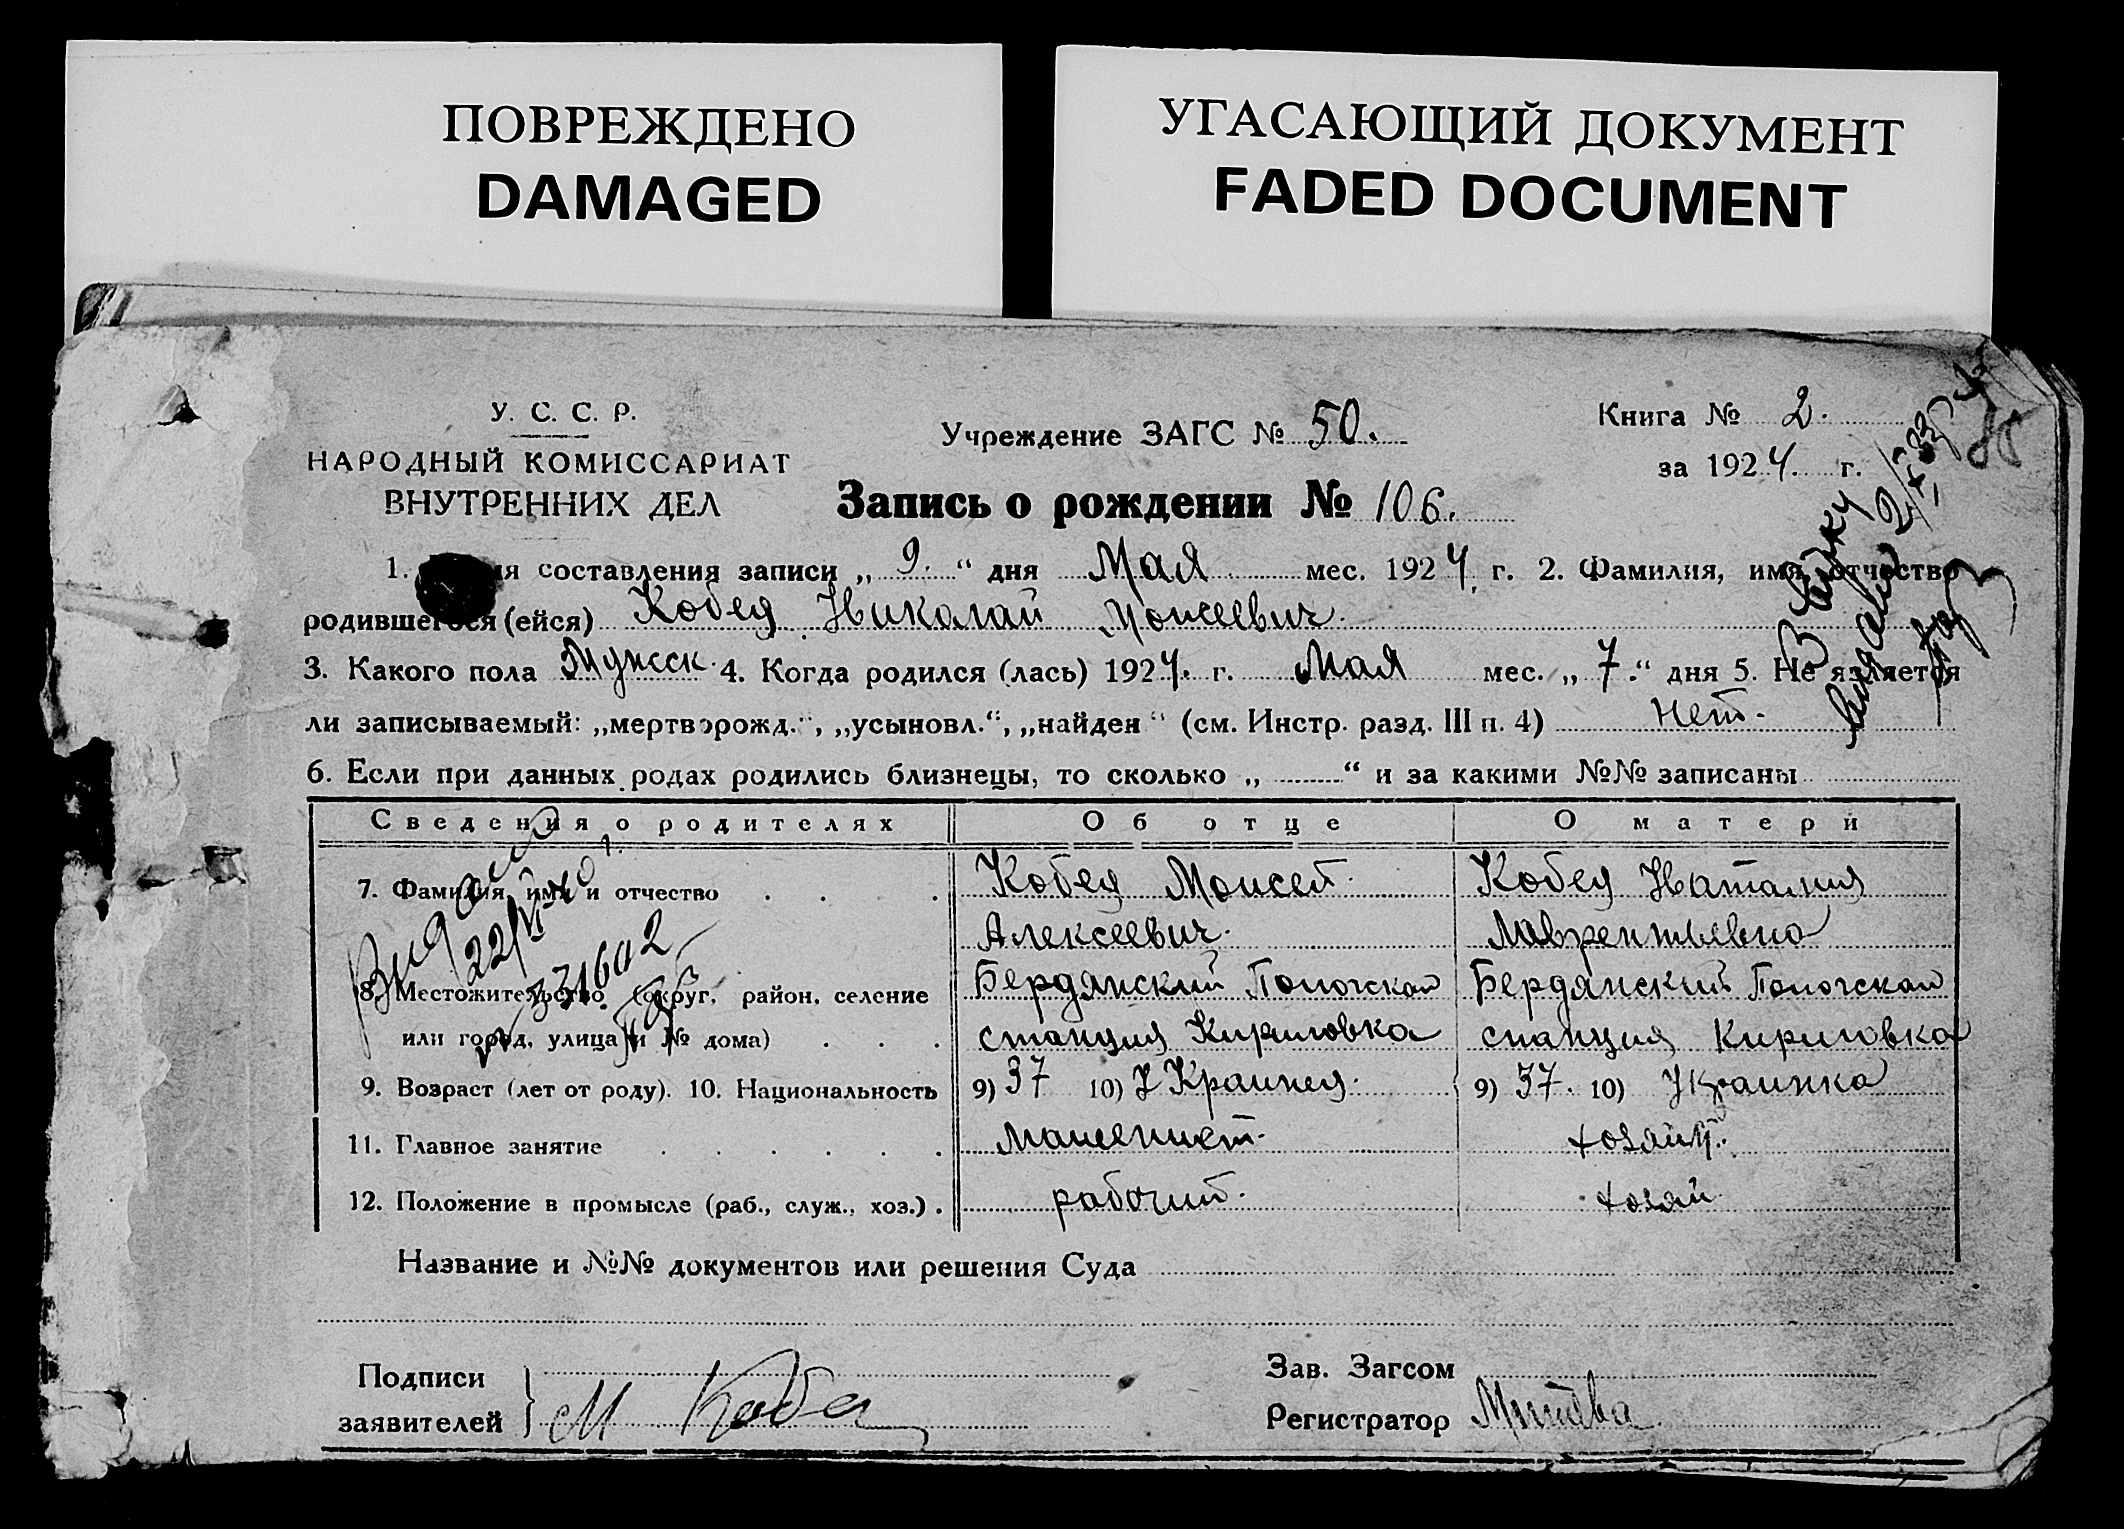 ПОВРЕЖДЕНО
DAMAGED
УГАСАЮЩИЙ ДОКУМЕНТ
FADED DOCUMENT
У. С. С. Р.
НАРОДНЫЙ КОМИССАРИАТ
ВНУТРЕННИХ ДЕЛ
Учреждение ЗАГС № 50.
Книга № 2.
за 1924. г.
Запись о рождении № 106.
1. составления записи „ 9. “ дня Мая мес. 1924 г. 2. Фамилия, имя, отчество
родившегося (ейся) Кобец Николай Моисеевич.
3. Какого пола Мужск. 4. Когда родился (лась) 1924. г. Мая мес. „ 7. “ дня 5. Не является
ли записываемый: „мертворожд.“, „усыновл.“, „найден“ (см. Инстр. разд. III п. 4) Нет.
6. Если при данных родах родились близнецы, то сколько „ “ и за какими №№ записаны
Сведения о родителях Об отце О матери
7. Фамилия, имя и отчество Кобец Моисей Кобец Наталия
Алексеевич. Лаврентьевна
8. Местожительство (округ, район, селение Бердянский Бердянский
или город, улица и № дома) станция Кириловка станция Кириловка
9. Возраст (лет от роду). 10. Национальность 9) 37 10) Украинец. 9) 37. 10) Украинка
11. Главное занятие Машинист. хозяйк.
12. Положение в промысле (раб., служ., хоз.) рабочий. хозяй.
Видано
22/VI-40 г.
331602
Название и №№ документов или решения Суда
Подписи
заявителей М Кобец
Зав. Загсом
Регистратор